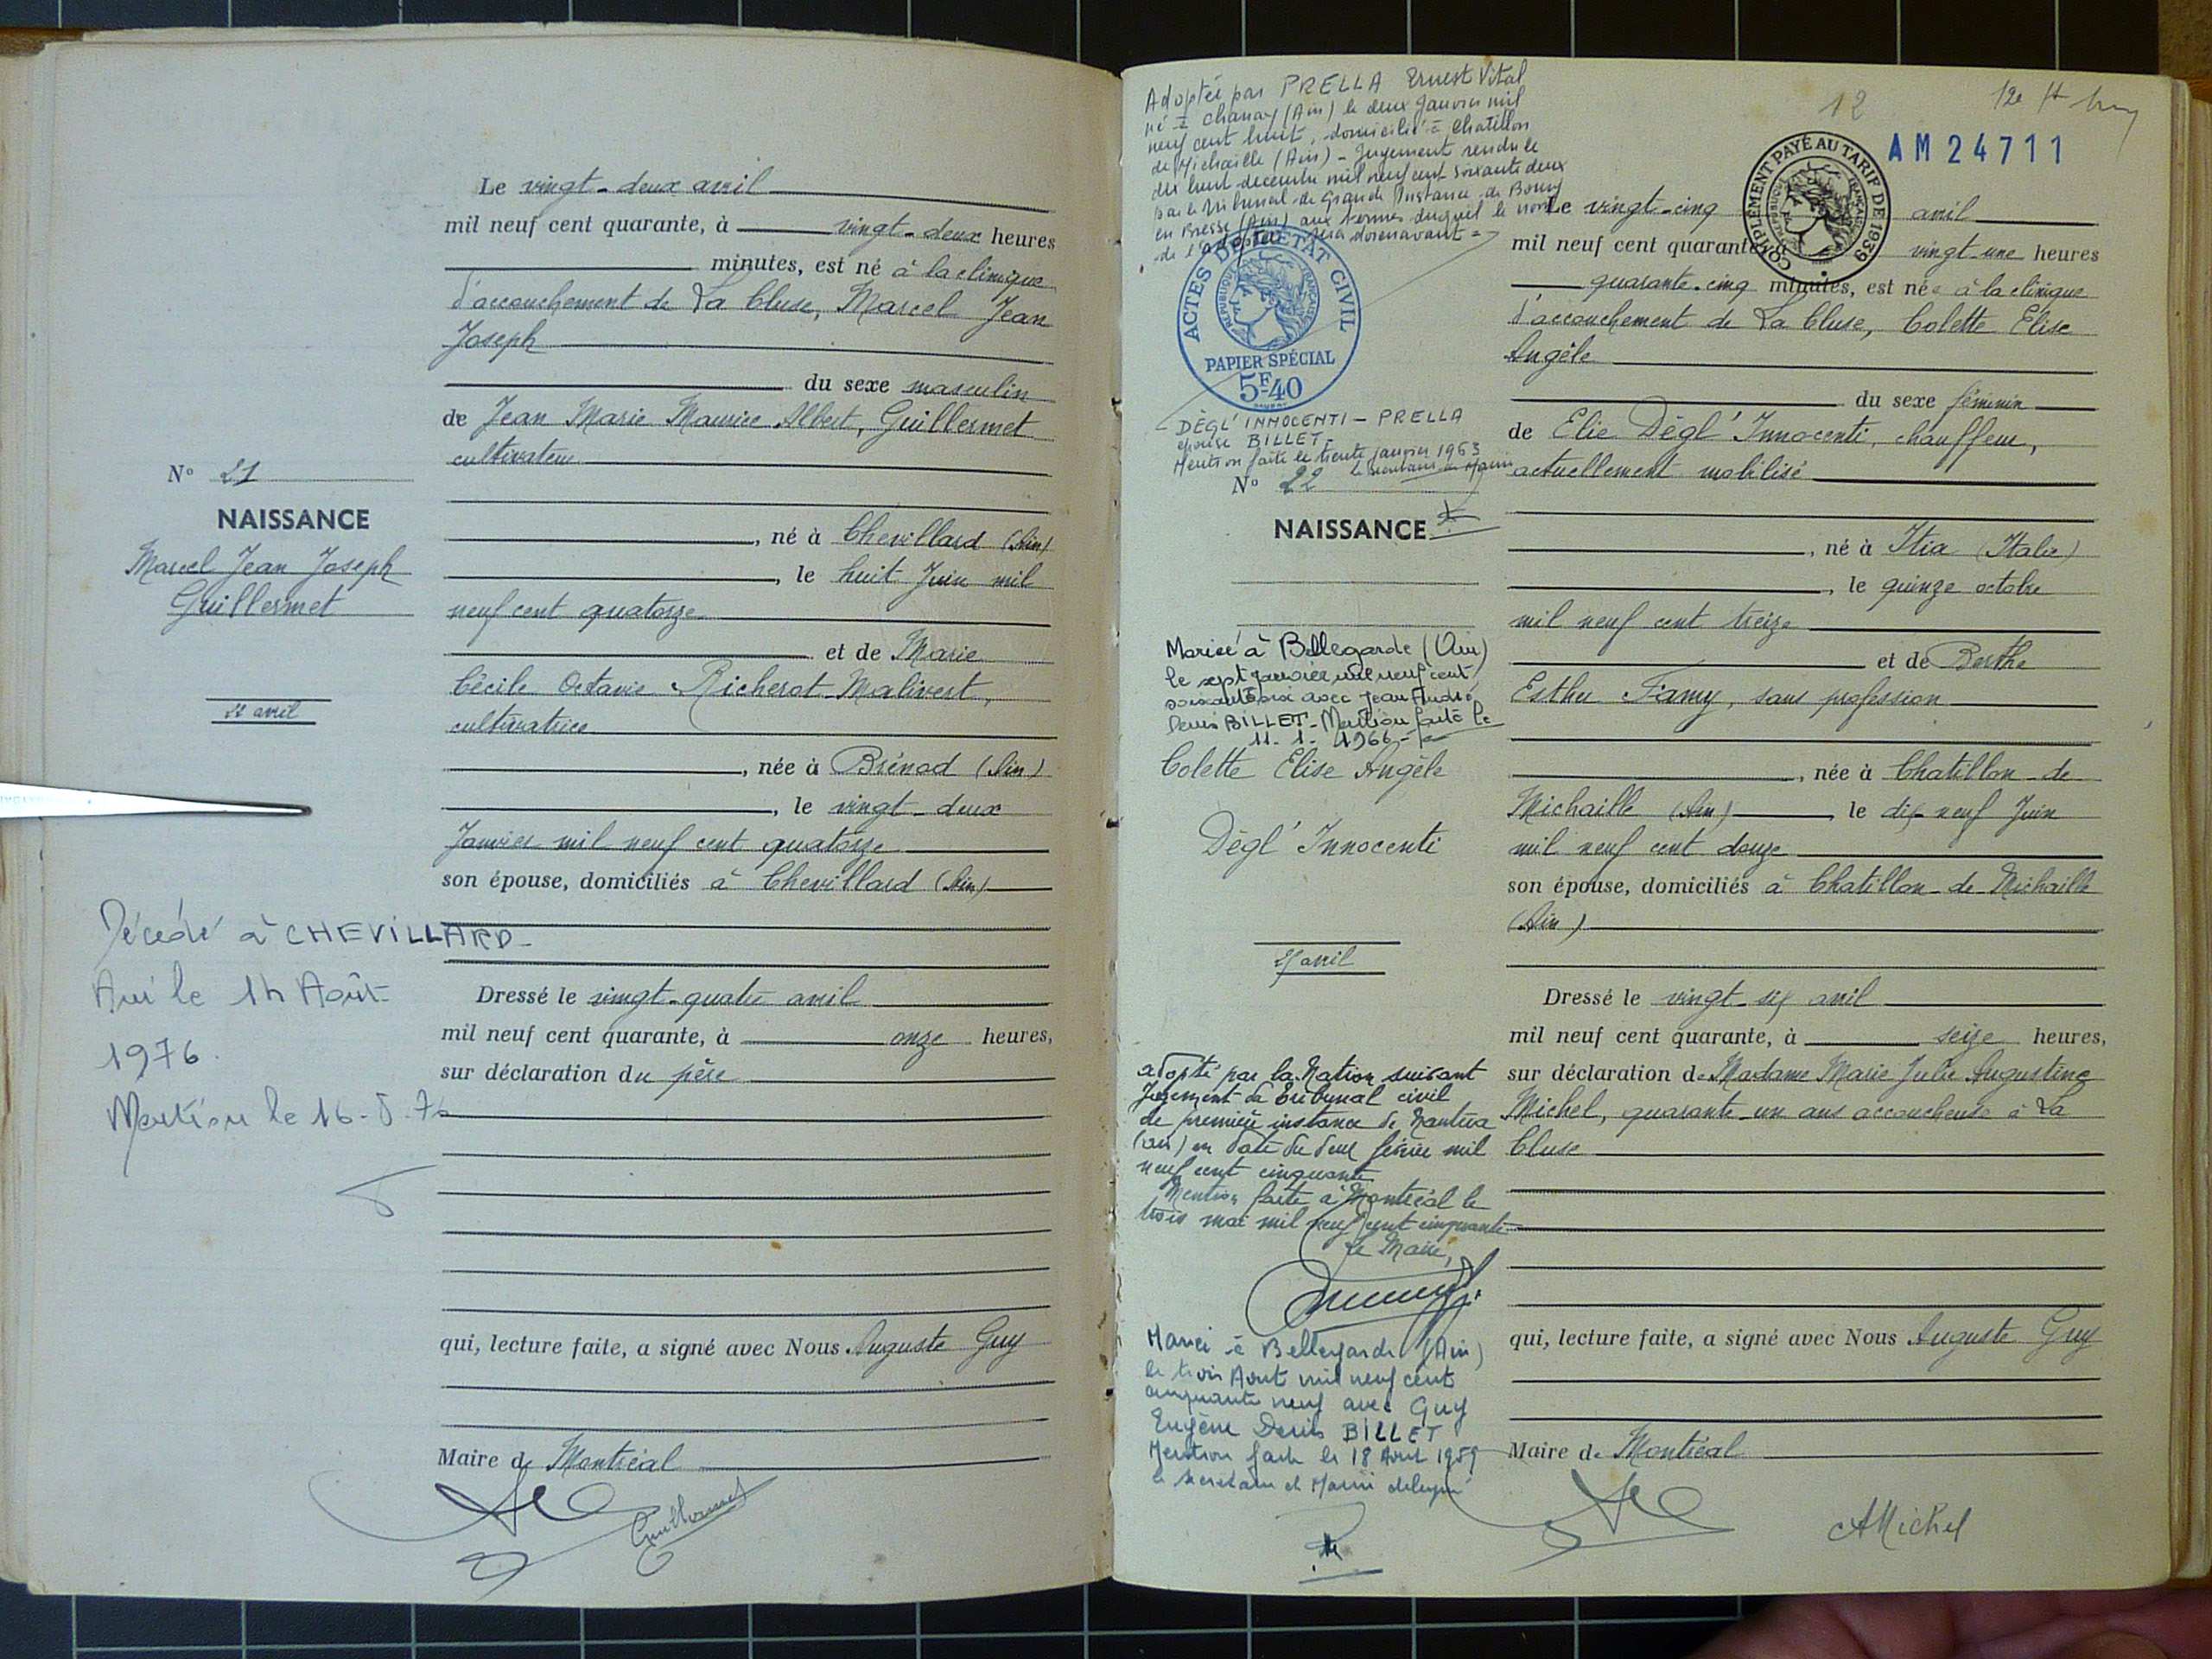 Le vingt-deux avril
mil neuf cent quarante, à vingt-deux heures
minutes, est né à la clinique
d'accouchement de La Cluse, Marcel Jean
Joseph
du sexe masculin
de Jean Marie Maurice Albert, Guillermet
cultivateur
N° 21
NAISSANCE
Marcel Jean Joseph
Guillermet
22 avril
, né à Chevillard (Ain)
, le huit Juin mil
neuf cent quatorze
et de Marie
Cécile Octavie Richerot-Malivert,
cultivatrice
, née à Brénod (Ain)
, le vingt-deux
Janvier mil neuf cent quatorze
son épouse, domiciliés à Chevillard (Ain)
Décédé à CHEVILLARD-
Ain le 14 Août
1976.
Mention le 16-8-76
Dressé le vingt-quatre avril
mil neuf cent quarante, à onze heures,
sur déclaration du père
qui, lecture faite, a signé avec Nous Auguste Guy
Maire de Montréal
Guillermet
Adoptée par PRELLA Ernest Vital
né à Chanay (Ain) le deux Janvier mil
neuf cent huit, domicilié à Chatillon
de Michaille (Ain) - Jugement rendu le
dix huit decembre mil neuf cent soixante deux
par le Tribunal de Grande Instance de Bourg
en Bresse (Ain) aux termes duquel le nom
de l'adoptée sera dorenavant =
ACTES DE L'ETAT CIVIL
RÉPUBLIQUE FRANÇAISE
PAPIER SPÉCIAL
5F40
DÈGL'INNOCENTI - PRELLA
épouse BILLET-
Mention faite le trente janvier 1963
le secretaire de Mairie
N° 22
NAISSANCE
Mariée à Bellegarde (Ain)
le sept janvier mil neuf cent
soixante six avec Jean André
Denis BILLET - Mention faite le
11-1-1966-
Colette Elise Angèle
Dègl'Innocenti
25 avril
adopté par la Nation suivant
Jugement du tribunal civil
de première instance de Nantua
(ain) en date du deux février mil
neuf cent cinquante
Mention faite à Montréal le
trois mai mil neuf cent cinquante
Le Maire,
Marié à Bellegarde (Ain)
le trois Aout mil neuf cent
cinquante neuf avec Guy
Eugène Denis BILLET
Mention faite le 18 Aout 1959
le secretaire de Mairie délégué
12
AM 24711
COMPLÉMENT PAYÉ AU TARIF DE 1939
RÉPUBLIQUE FRANÇAISE
Le vingt-cinq avril
mil neuf cent quarante, à vingt-une heures
quarante-cinq minutes, est née à la clinique
d'accouchement de La Cluse, Colette Elise
Angèle
du sexe féminin
de Elie Dègl'Innocenti, chauffeur,
actuellement mobilisé
, né à Itia (Italie)
, le quinze octobre
mil neuf cent treize
et de Berthe
Esther Famy, sans profession
, née à Chatillon-de
Michaille (Ain) , le dix-neuf Juin
mil neuf cent douze
son épouse, domiciliés à Chatillon-de Michaille
(Ain)
Dressé le vingt-six avril
mil neuf cent quarante, à seize heures,
sur déclaration de Madame Marie Julie Augustine
Michel, quarante-un ans accoucheuse à La
Cluse
qui, lecture faite, a signé avec Nous Auguste Guy
Maire de Montréal
AMichel